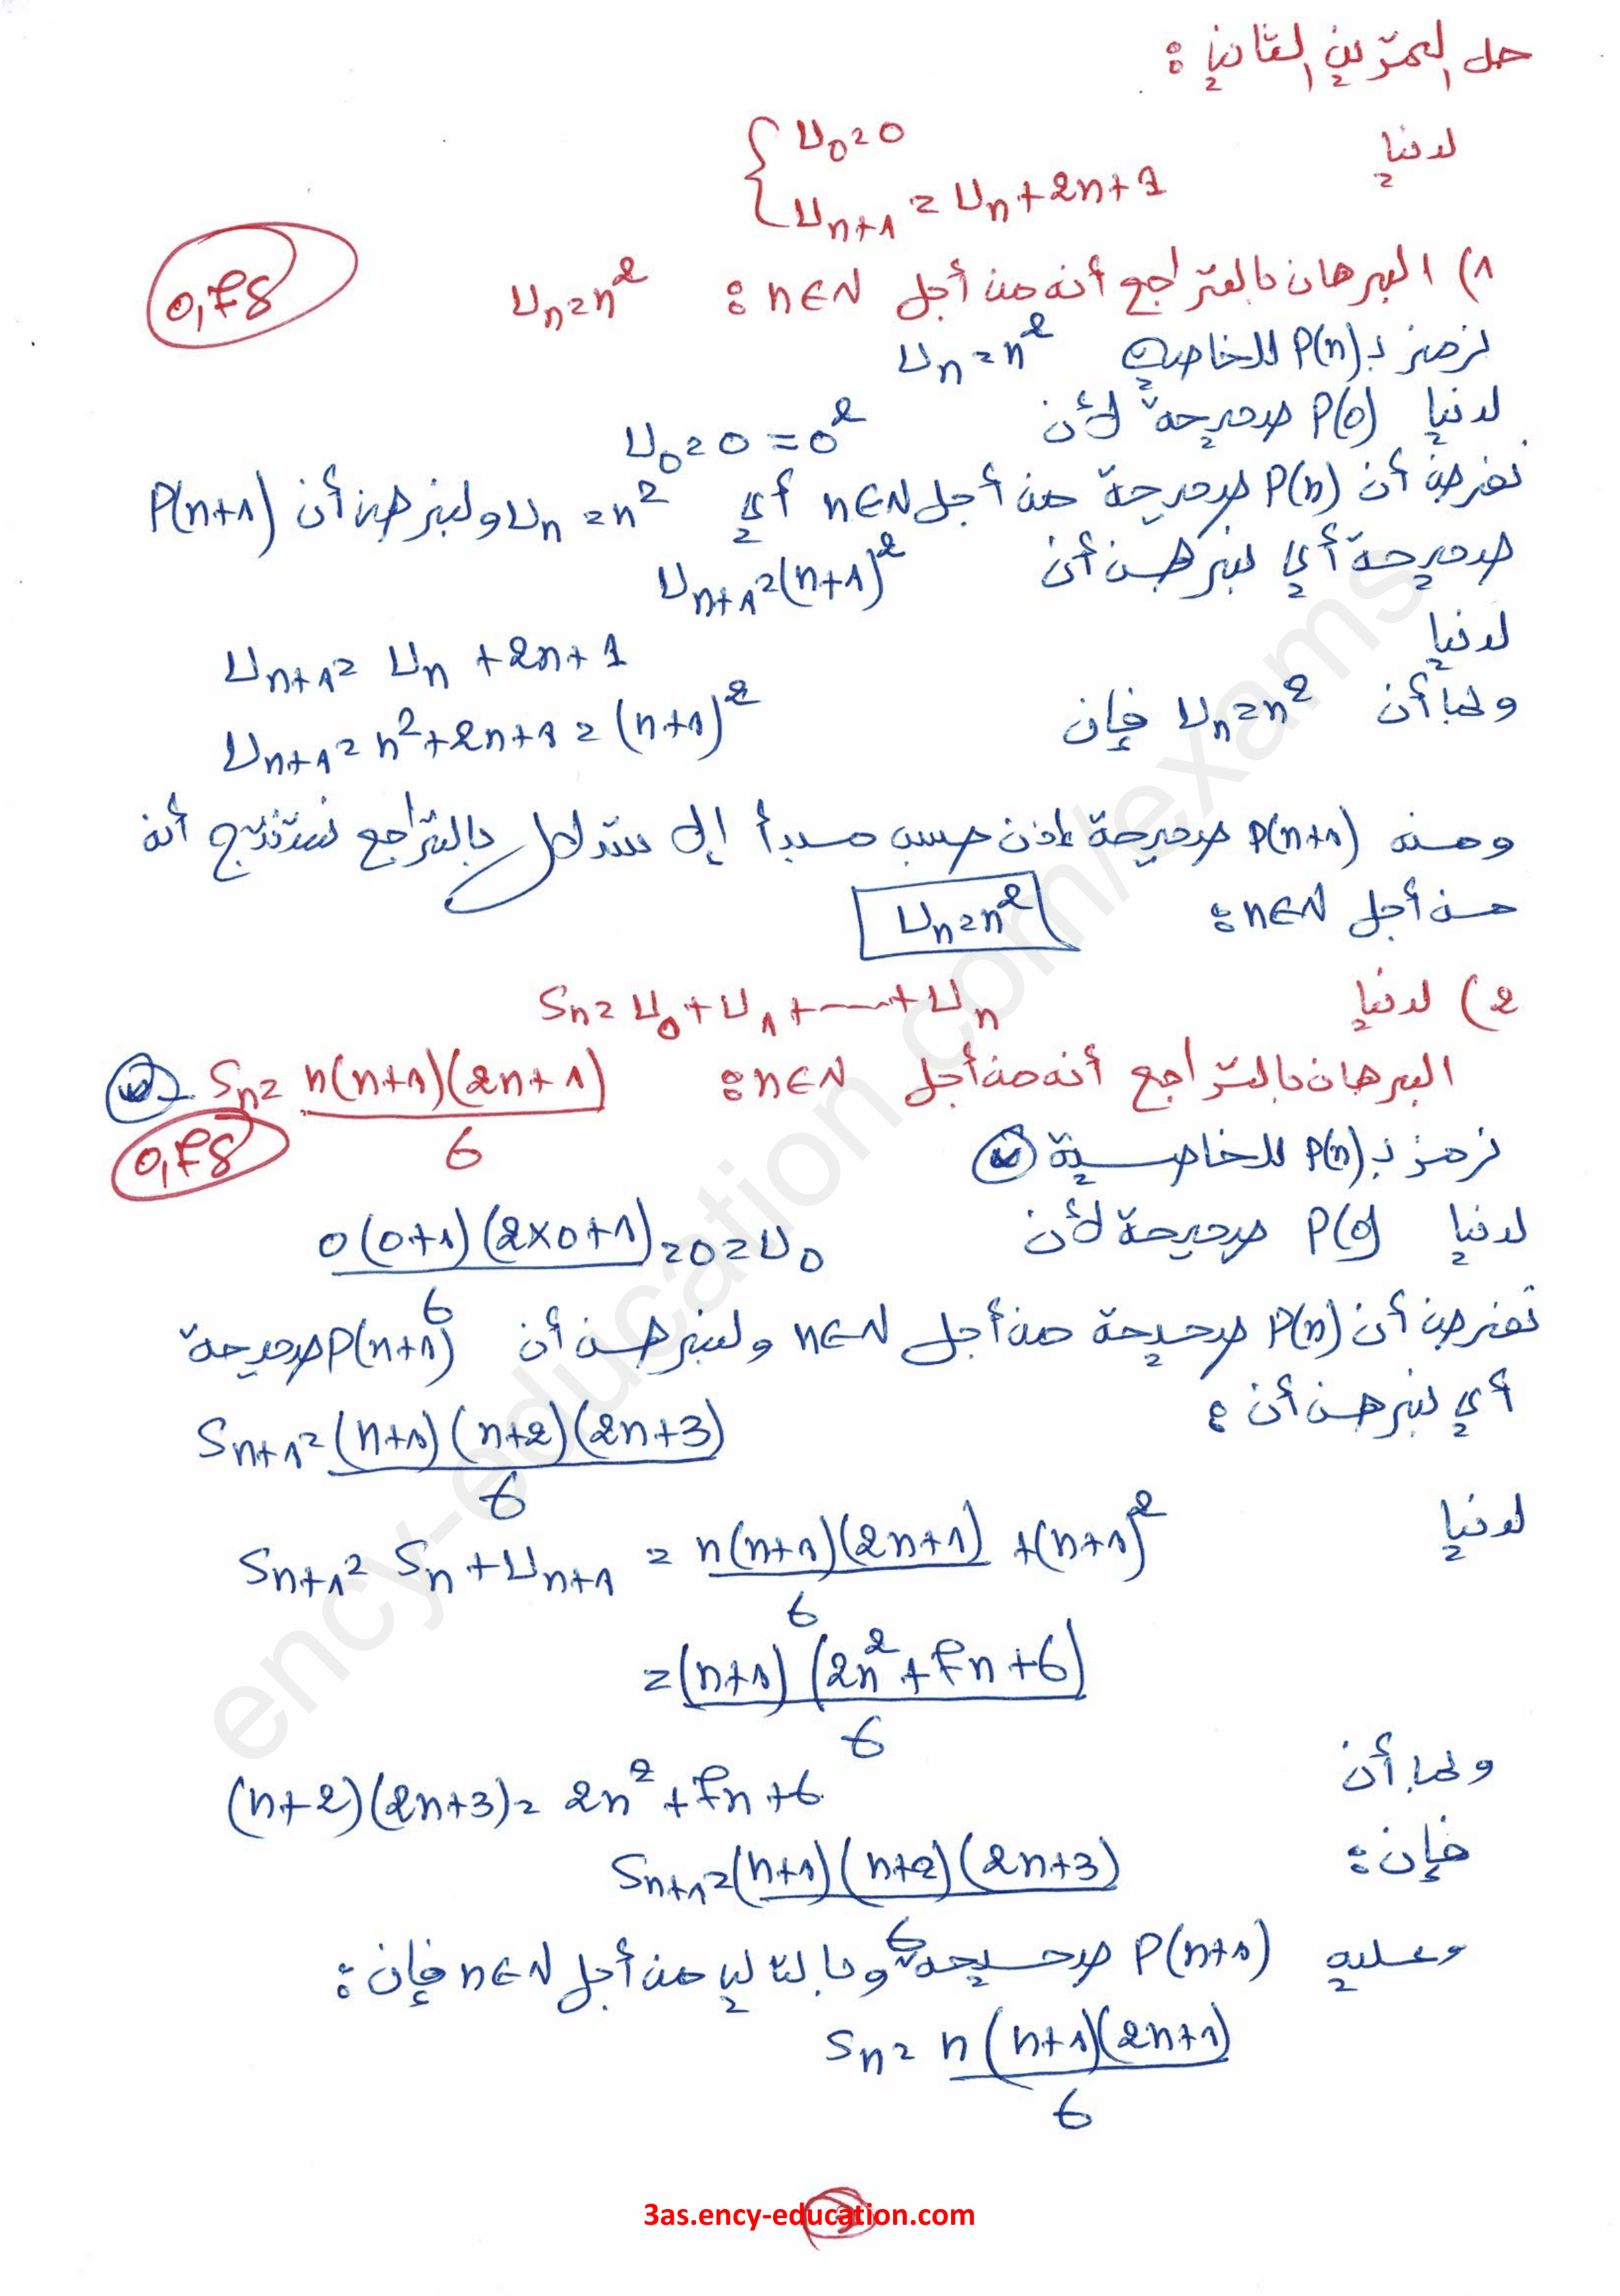 حل التمرين الثاني :
لدينا
{ U₀ = 0
U_{n+1} = U_n + 2n + 1
1) البرهان بالتراجع أنه من أجل n∈N : U_n = n²
0,75
نرمز بـ P(n) للخاصية U_n = n²
لدينا P(0) صحيحة لأن U₀ = 0 = 0²
نفرض أن P(n) صحيحة من أجل n∈N أي U_n = n² ولنبرهن أن P(n+1)
صحيحة أي لنبرهن أن U_{n+1} = (n+1)²
لدينا U_{n+1} = U_n + 2n + 1
وبما أن U_n = n² فإن U_{n+1} = n² + 2n + 1 = (n+1)²
ومنه P(n+1) صحيحة إذن حسب مبدأ إلاستدلال بالتراجع نستنتج أنه
من أجل n∈N : U_n = n²
2) لدينا S_n = U₀ + U₁ + ...... + U_n
البرهان بالتراجع أنه من أجل n∈N : S_n = n(n+1)(2n+1)/6
0,75
نرمز بـ P(n) للخاصية
لدينا P(0) صحيحة لأن 0(0+1)(2×0+1)/6 = 0 = U₀
نفرض أن P(n) صحيحة من أجل n∈N ولنبرهن أن P(n+1) صحيحة
أي لنبرهن أن : S_{n+1} = (n+1)(n+2)(2n+3)/6
لدينا S_{n+1} = S_n + U_{n+1} = n(n+1)(2n+1)/6 + (n+1)²
= (n+1)(2n² + 7n + 6)/6
وبما أن (n+2)(2n+3) = 2n² + 7n + 6
فإن : S_{n+1} = (n+1)(n+2)(2n+3)/6
وعليه P(n+1) صحيحة وبالتالي من أجل n∈N فإن :
S_n = n(n+1)(2n+1)/6
3as.ency-education.com
ency-education.com/exams